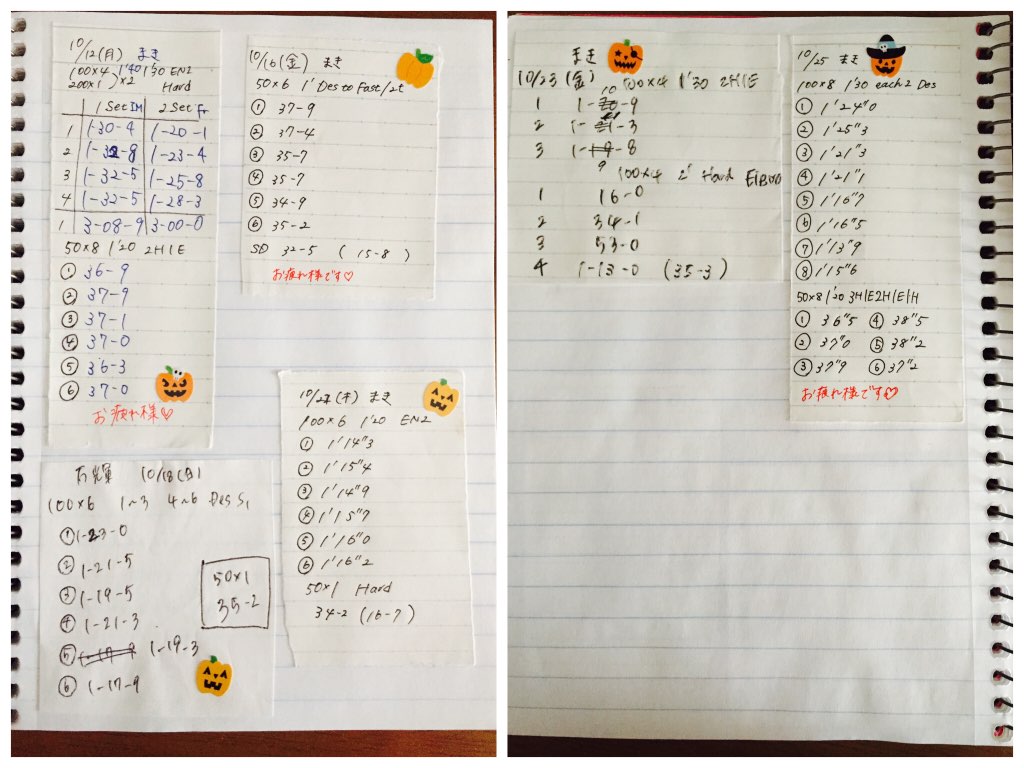 10/12(月) まき
100×4 1'40 1'30 EN2
200×1 ×2 Hard
1 Set IM 2 Set Fr
1 1-30-4 1-20-1
2 1-32-8 1-23-4
3 1-32-5 1-25-8
4 1-32-5 1-28-3
1 3-08-9 3-00-0
50×8 1'20 2H1E
① 36-9
② 37-9
③ 37-1
④ 37-0
⑤ 36-3
⑥ 37-0
お疲れ様♡
10/18(日)
100×6 1~3 4~6 Des S1
① 1-23-0
② 1-21-5
③ 1-19-5
④ 1-21-3
⑤ 1-19-3
⑥ 1-17-9
50×1
35-2
10/16(金) まき
50×6 1' Des to Fast/2t
① 37-9
② 37-4
③ 35-7
④ 35-7
⑤ 34-9
⑥ 35-2
SD 32-5 (15-8)
お疲れ様です♡
(木) まき
100×6 1'20 EN2
① 1'14"3
② 1'15"4
③ 1'14"9
④ 1'15"7
⑤ 1'16"0
⑥ 1'16"2
50×1 Hard
34-2 (16-7)
まき
10/23(金) 100×4 1'30 2H1E
1 1-10-9
2 1-11-3
3 1-9-8
100×4 2' Hard
1 16-0
2 34-1
3 53-0
4 1-13-0 (35-3)
10/25 まき
100×8 1'30 each 2 Des
① 1'24"0
② 1'25"3
③ 1'21"3
④ 1'21"1
⑤ 1'16"7
⑥ 1'16"5
⑦ 1'13"9
⑧ 1'15"6
50×8 1'20 3H1E2H1E1H
① 36"5 ④ 38"5
② 37"0 ⑤ 38"2
③ 37"9 ⑥ 37"2
お疲れ様です♡